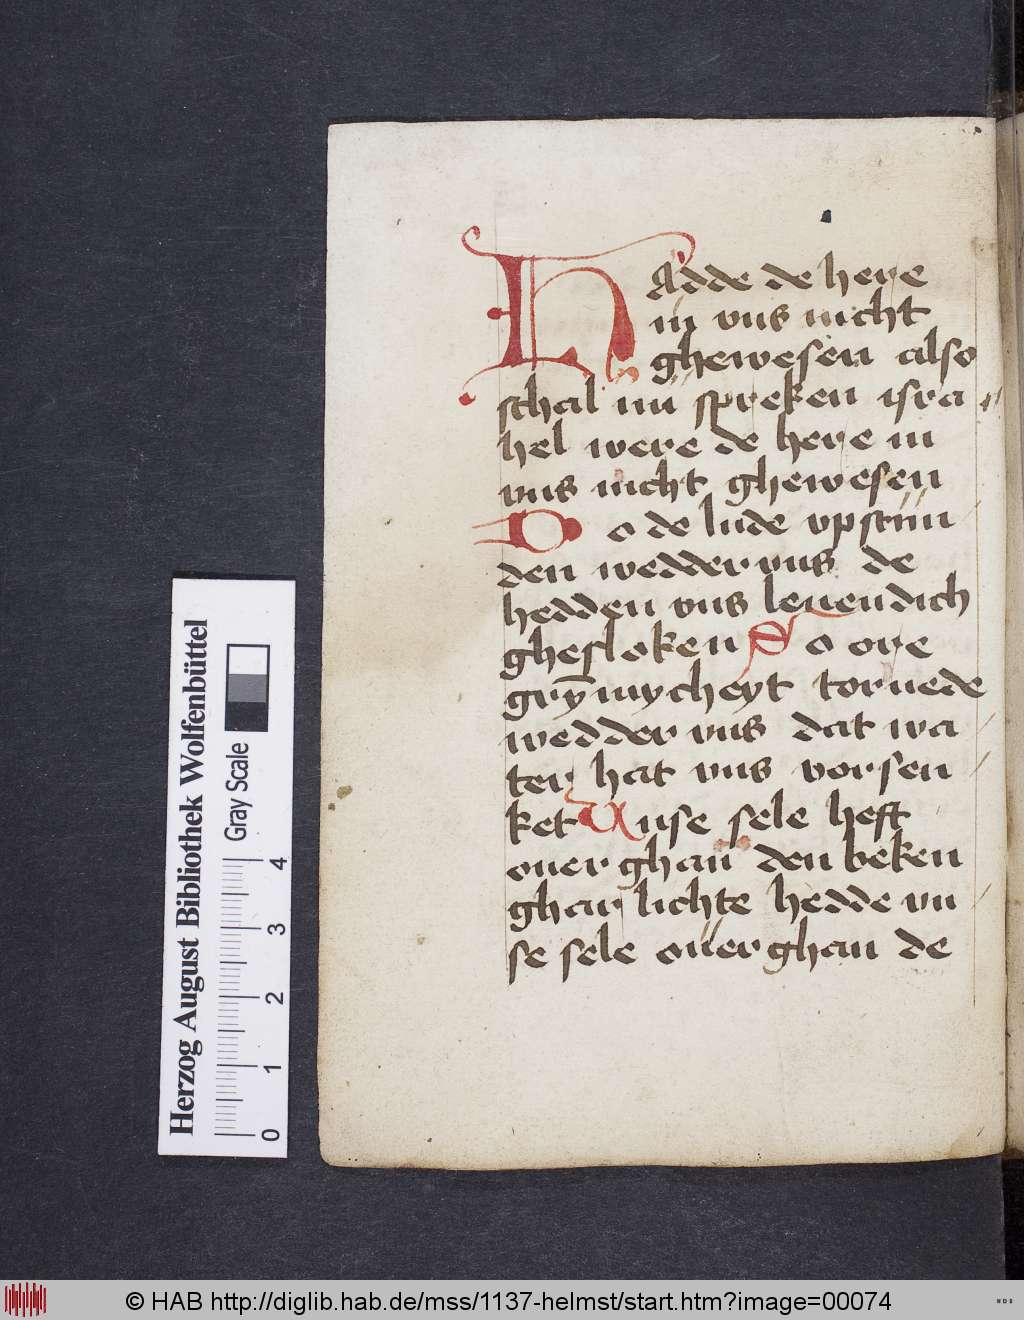 Hadde de here
in vns nicht
ghewesen also
schal nu spreken isra
hel were de here in
vns nicht ghewesen
Do de lude vpstun
den wedder vns de
hedden vns leuendich
ghesloken So ore
grȳmycheyt tornede
wedder vns dat wa
ter hat vns vorsen
ket Unse sele heft
ouer ghan den beken
ghar lichte hedde vn
se sele ouer ghan de
Herzog August Bibliothek Wolfenbüttel
Gray Scale
0 1 2 3 4
© HAB http://diglib.hab.de/mss/1137-helmst/start.htm?image=00074